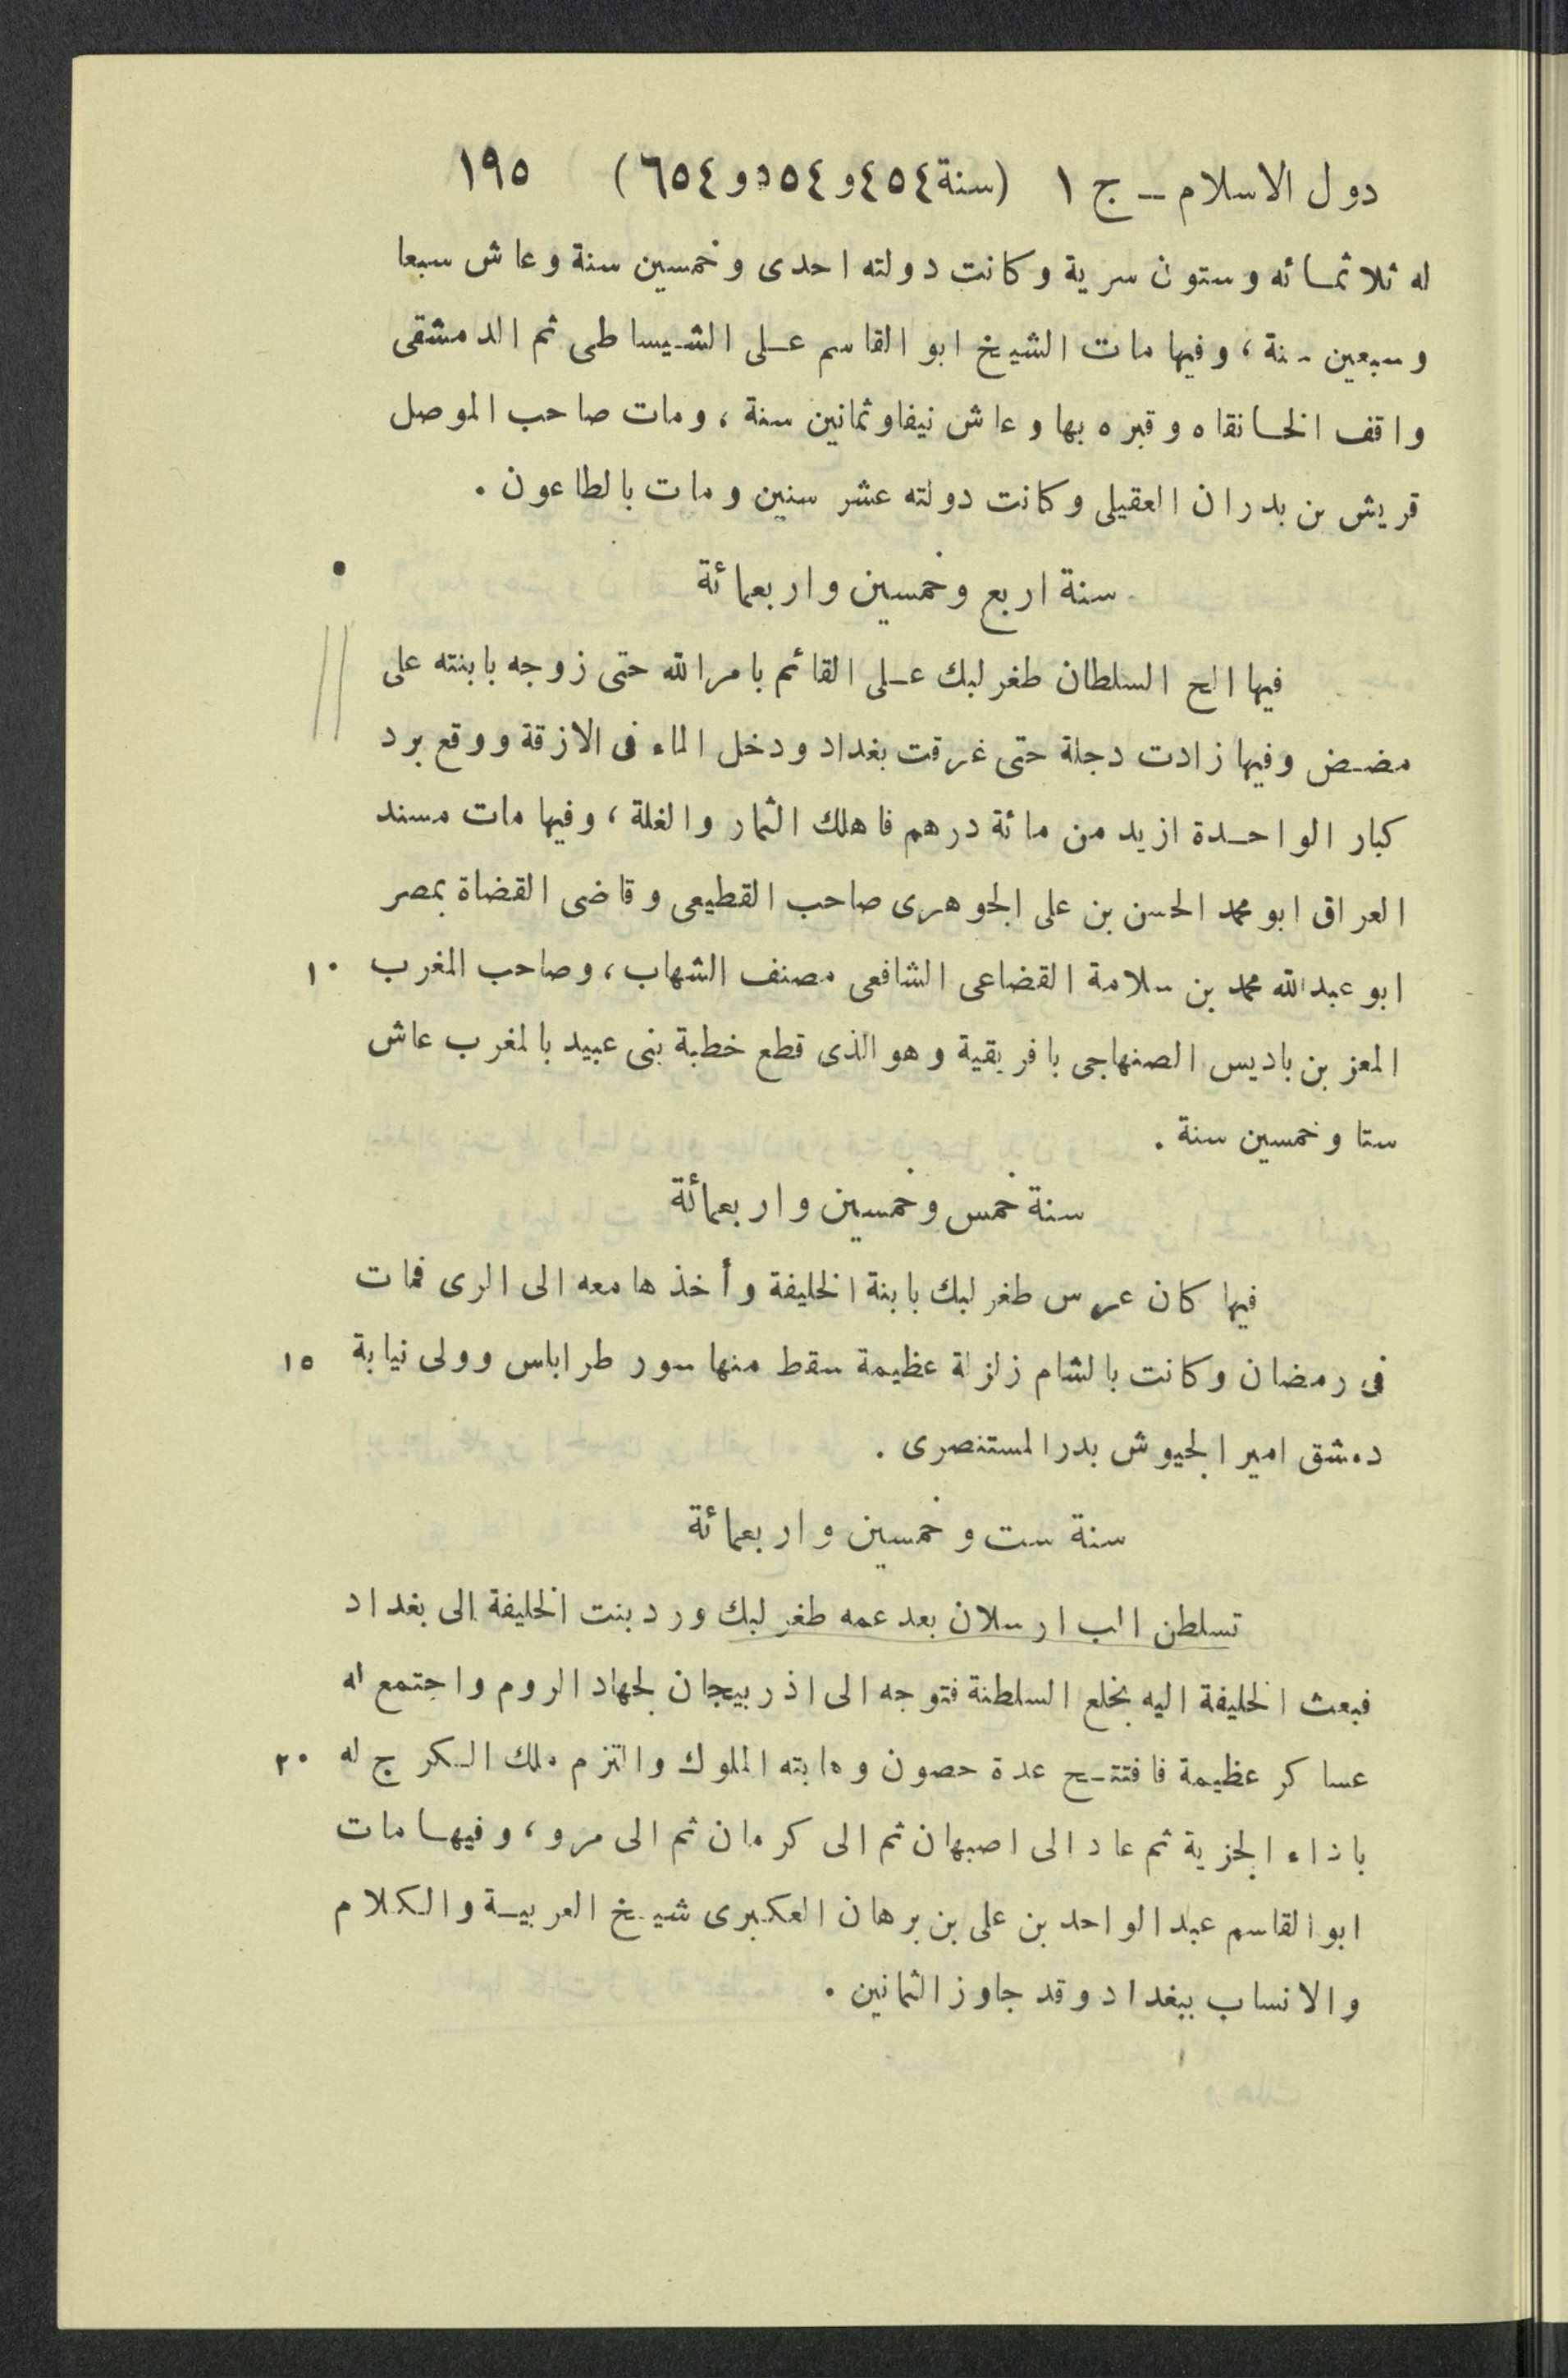 دول الاسلام ـ ج ١ (سنة ٤٥٤ و ٥٥٤ و ٦٥٤) ١٩٥
له ثلاثمائه وستون سرية وكانت دولته احدى وخمسين سنة وعاش سبعا
وسبعين سنة ، وفيها مات الشيخ ابو القاسم على الشيساطى ثم الدمشقى
واقف الخانقاه وقبره بها وعاش نيفا وثمانين سنة ، ومات صاحب الموصل
قريش بن بدران العقيلى وكانت دولته عشر سنين ومات بالطاعون .
سنة اربع وخمسين واربعمائة
فيها الح السلطان طغر لبك على القائم بامر الله حتى زوجه بابنته على
مضض وفيها زادت دجلة حتى غرقت بغداد ودخل الماء فى الازقة ووقع برد
كبار الواحدة ازيد من مائة درهم فاهلك الثمار والغلة ، وفيها مات مسند
العراق ابو محمد الحسن بن على الجوهرى صاحب القطيعى وقاضى القضاة بمصر
ابو عبد الله محمد بن سلامة القضاعى الشافعى مصنف الشهاب ، وصاحب المغرب ١٠
المعز بن باديس الصنهاجى بافريقية وهو الذى قطع خطبة بنى عبيد بالمغرب عاش
ستا وخمسين سنة .
سنة خمس وخمسين واربعمائة
فيها كان عرس طغر لبك بابنة الخليفة وأخذها معه الى الرى فمات
فى رمضان وكانت بالشام زلزلة عظيمة سقط منها سور طرابلس وولى نيابة ١٥
دمشق امير الجيوش بدر المستنصرى .
سنة ست وخمسين واربعمائة
تسلطن الب ارسلان بعد عمه طغر لبك ورد بنت الخليفة الى بغداد
فبعث الخليفة اليه بخلع السلطنة فتوجه الى اذربيجان لجهاد الروم واجتمع له
عساكر عظيمة فافتتح عدة حصون وهابته الملوك والتزم ملك الكرج له ٢٠
باداء الجزية ثم عاد الى اصبهان ثم الى كرمان ثم الى مرو ، وفيها مات
ابو القاسم عبد الواحد بن على بن برهان العكبرى شيخ العربية والكلام
والانساب ببغداد وقد جاوز الثمانين .